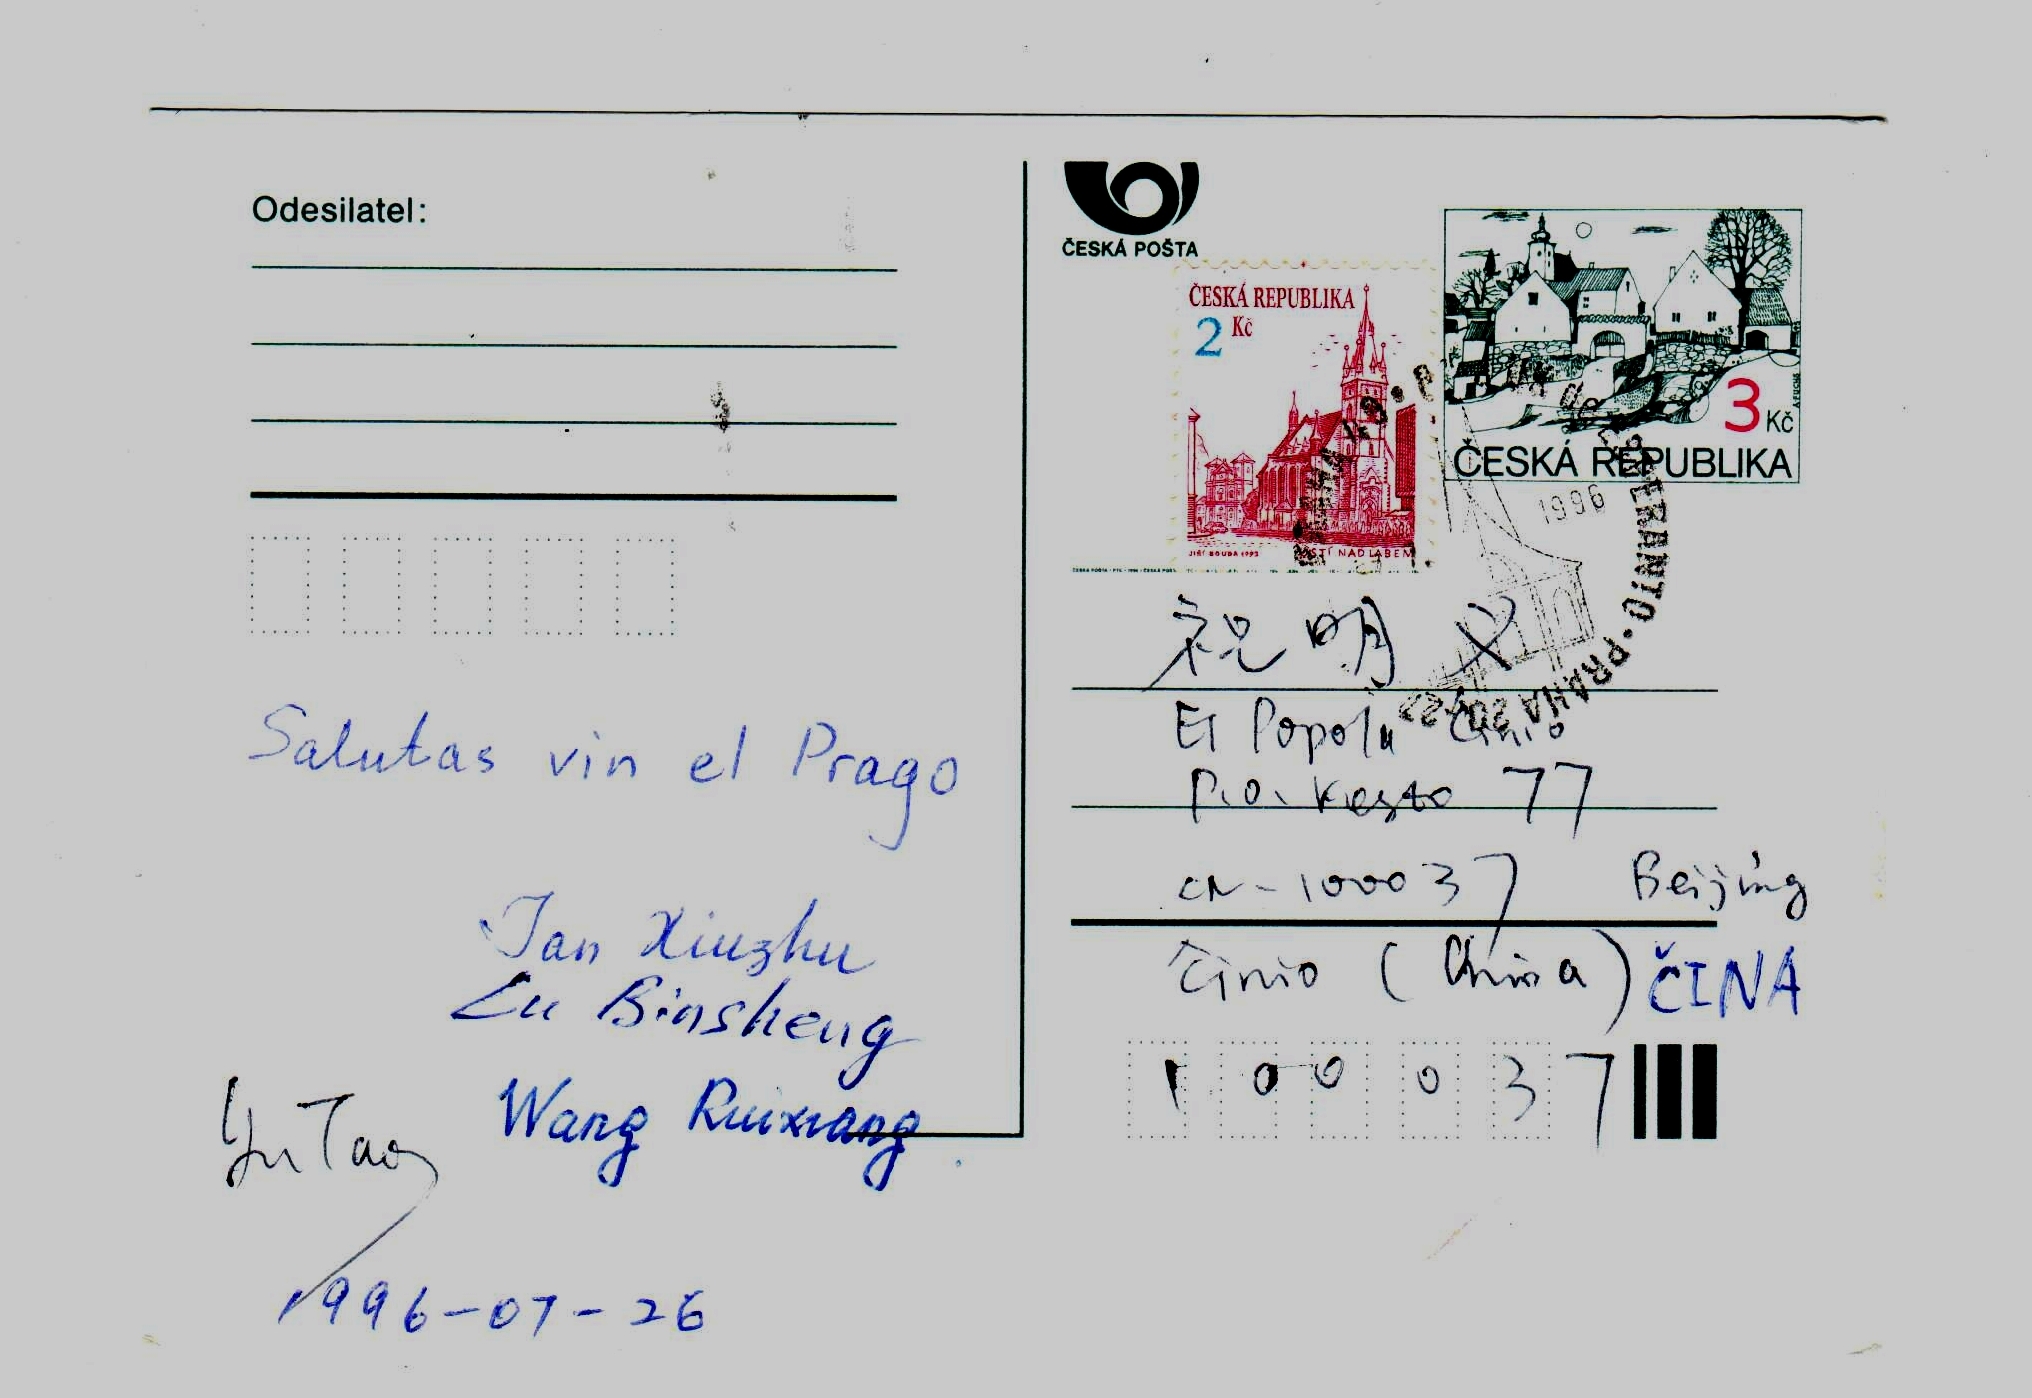 Odesilatel:
ČESKÁ POŠTA
ČESKÁ REPUBLIKA
2 Kč
JIŘÍ BOUDA 1993
ÚSTÍ NAD LABEM
3 Kč
ČESKÁ REPUBLIKA
1996
ESPERANTO • PRAHA
祝明义
El Popola Ĉinio
P.O. Kesto 77
CN-100037 Beijing
Ĉinio (China) ČINA
100037
Salutas vin el Prago
Tan Xiuzhu
Lu Binsheng
Wang Ruixiang
Yu Tao
1996-07-26